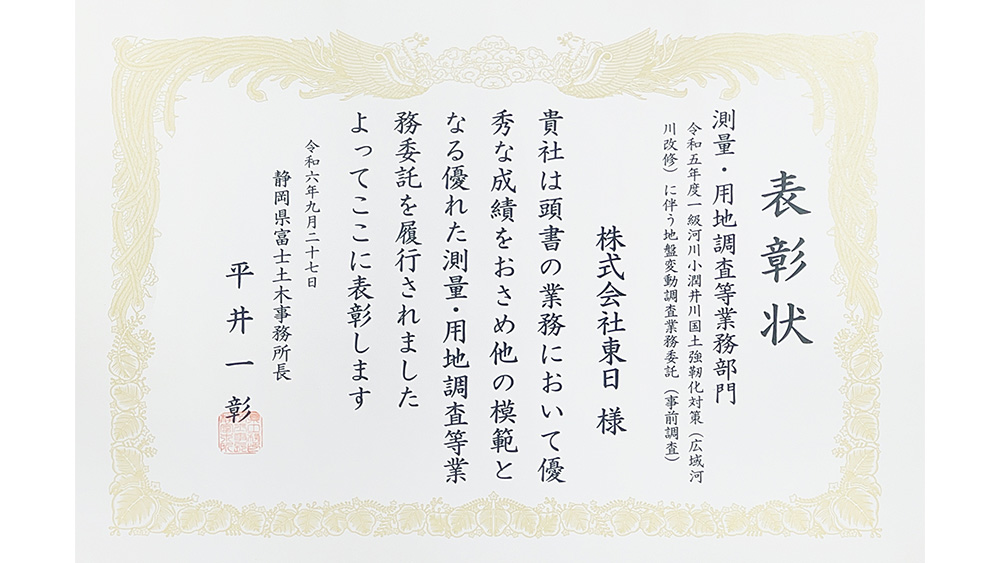 表彰状
測量・用地調査等業務部門
令和五年度一級河川小潤井川国土強靭化対策(広域河
川改修)に伴う地盤変動調査業務委託(事前調査)
株式会社東日 様
貴社は頭書の業務において優
秀な成績をおさめ他の模範と
なる優れた測量・用地調査等業
務委託を履行されました
よってここに表彰します
令和六年九月二十七日
静岡県富士土木事務所長
平井一彰